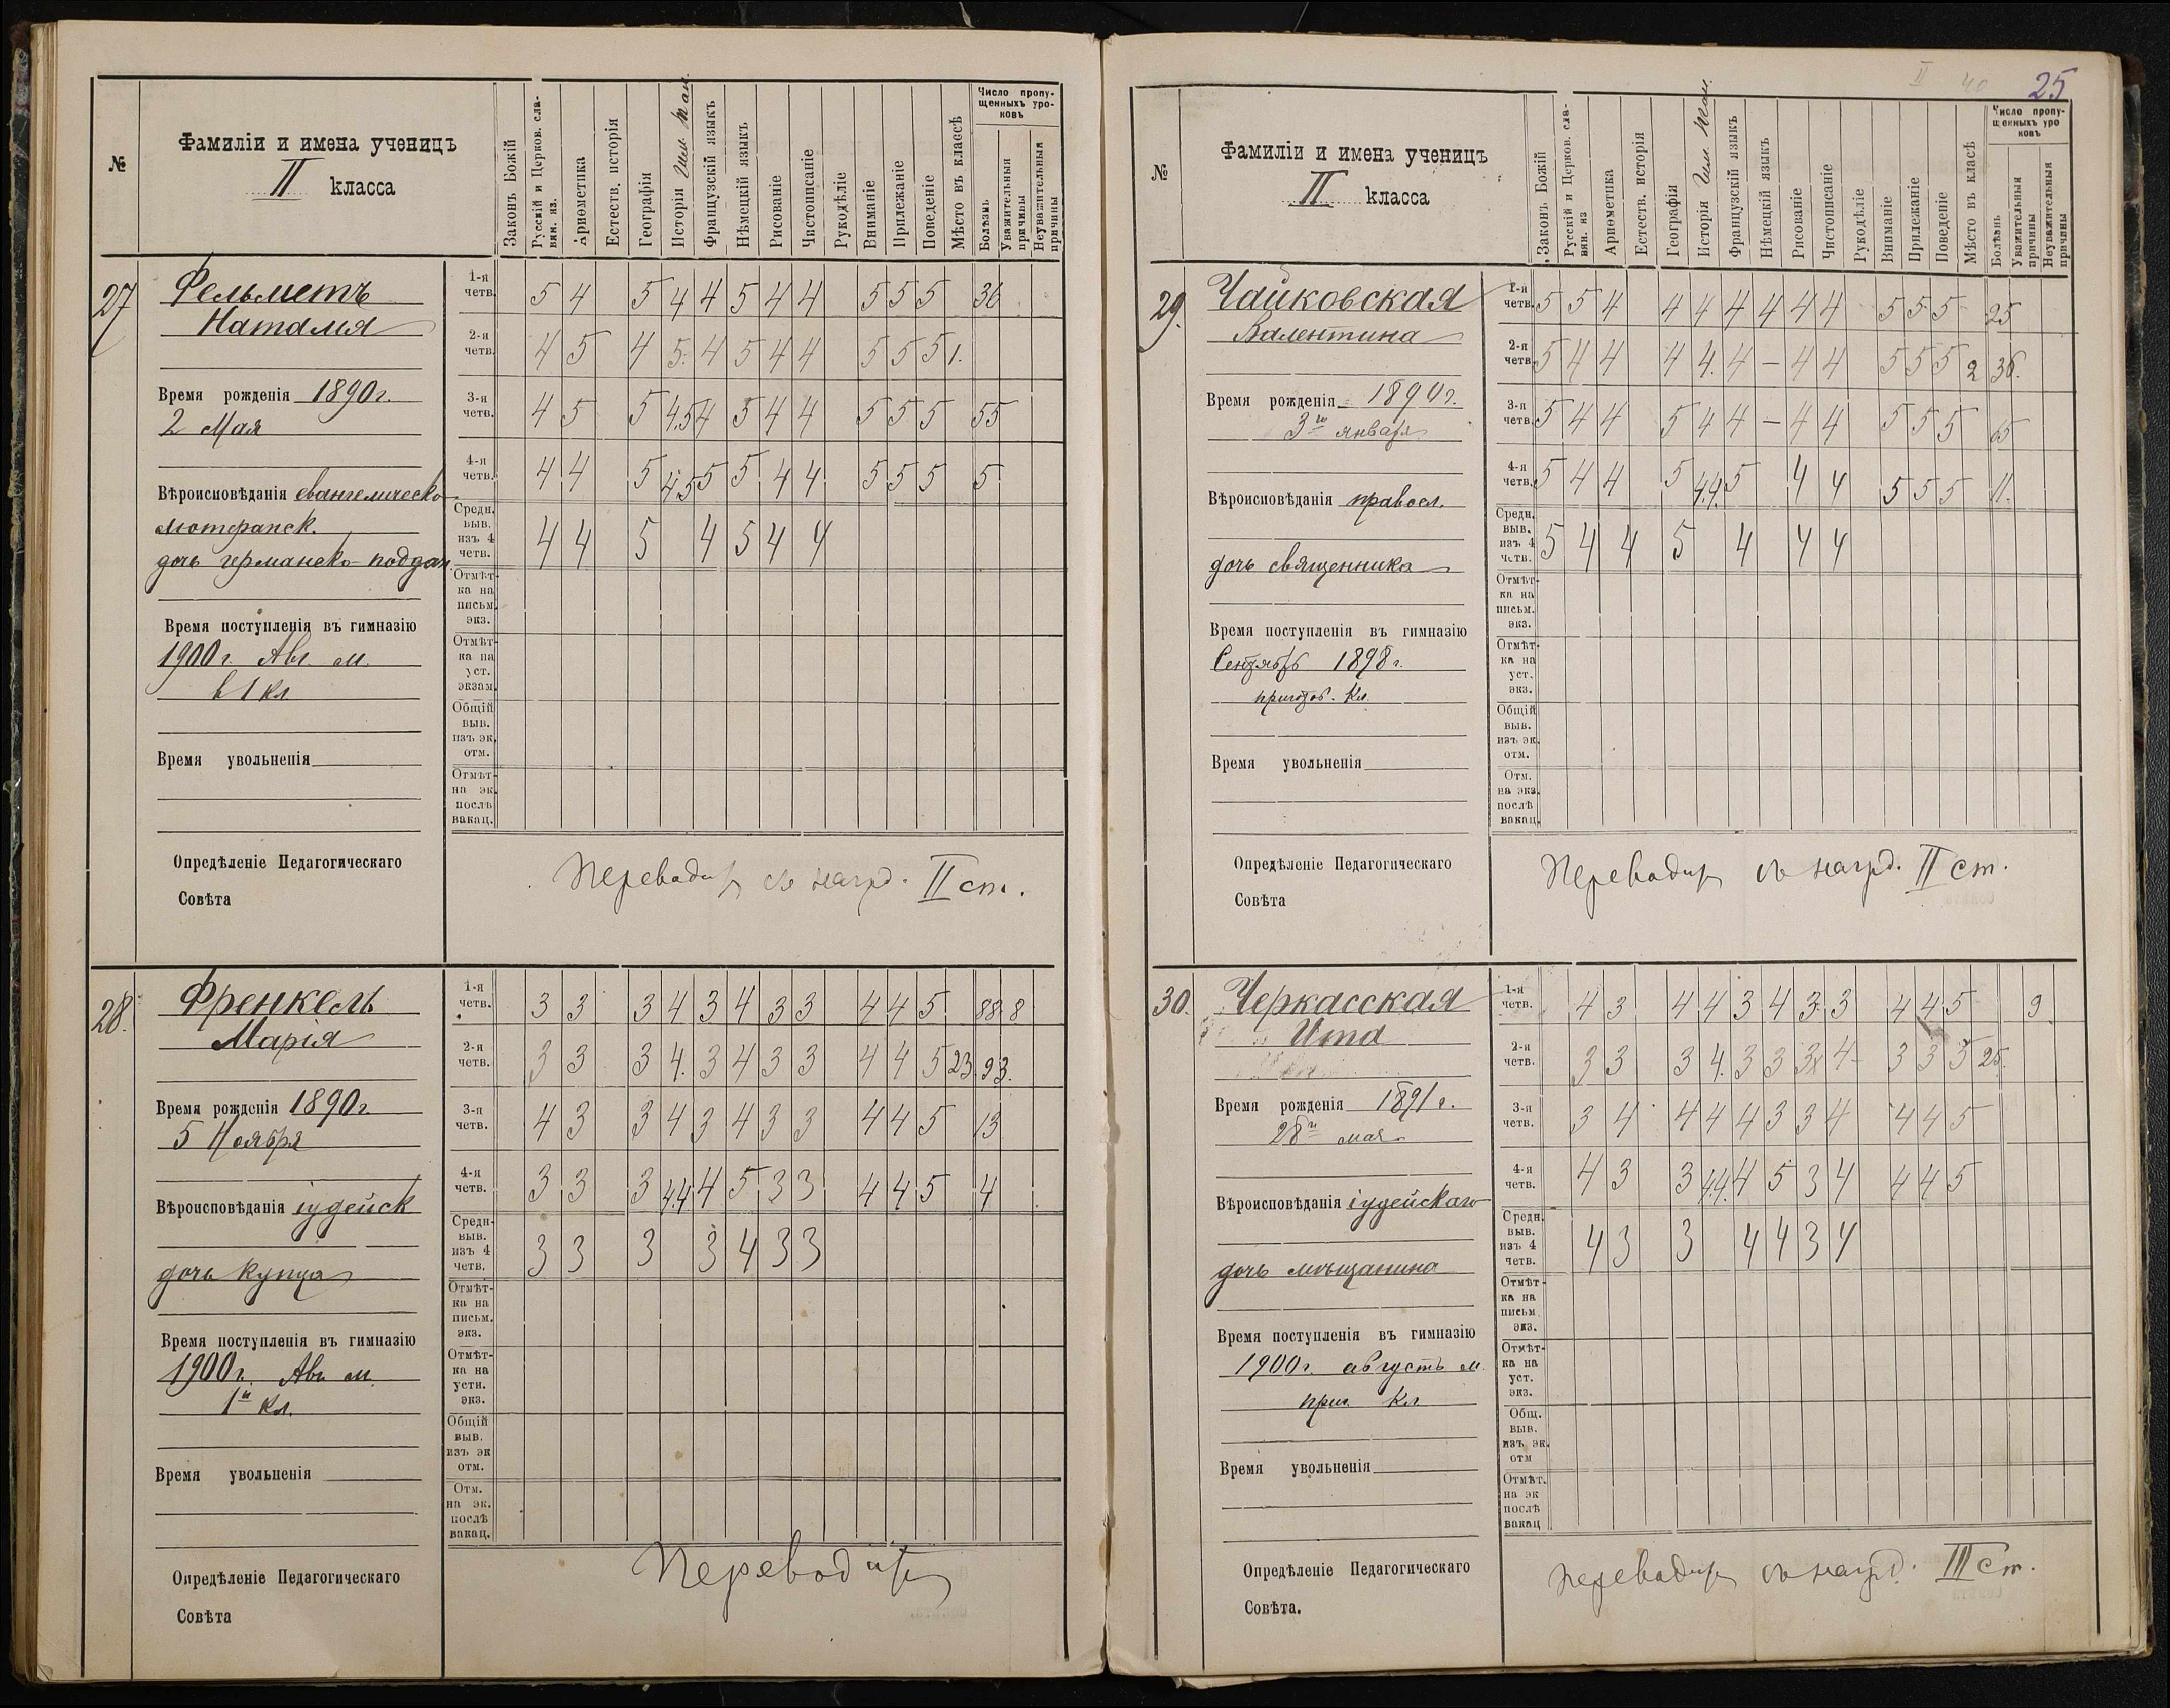 №
Фамиліи и имена ученицъ
II класса
Законъ Божій
Русскій и Церков. сла-
вян. яз.
Ариѳметика
Естеств. исторія
Географія
Исторія
Французскій языкъ
Нѣмецкій языкъ
Рисованіе
Чистописаніе
Рукодѣліе
Вниманіе
Прилежаніе
Поведеніе
Мѣсто въ классѣ
Число пропу-
щенныхъ уро-
ковъ
Болѣзнь
Уважительныя
причины
Неуважительныя
причины
27
Фельметъ
Наталія
Время рожденія 1890 г.
2 Мая
Вѣроисповѣданія евангелическо
лютеранск.
дочь германско-поддан.
Время поступленія въ гимназію
1900 г. Авг. м.
в 1 кл
Время увольненія
1-я четв. 5 4 5 4 4 5 4 4 5 5 5 36
2-я четв. 4 5 4 5. 4 5 4 4 5 5 5 1.
3-я четв. 4 5 5 4.5 4 5 4 4 5 5 5 55
4-я четв. 4 4 5 4.5 5 5 4 4 5 5 5 5
Средн. выв. изъ 4 четв. 4 4 5 4 5 4 4
Отмѣт-
ка на
письм.
экз.
Отмѣт-
ка на
уст.
экзам.
Общій
выв.
изъ эк.
отм.
Отмѣт-
на эк.
послѣ
вакац.
Опредѣленіе Педагогическаго
Совѣта
Переводит съ наград. II ст.
28.
Френкель
Марія
Время рожденія 1890 г.
5 Ноября
Вѣроисповѣданія іудейск
дочь купца
Время поступленія въ гимназію
1900 г. Авг. м.
1й кл.
Время увольненія
1-я четв. 3 3 3 4 3 4 3 3 4 4 5 88 8
2-я четв. 3 3 3 4. 3 4 3 3 4 4 5 23. 93.
3-я четв. 4 3 3 4 3 4 3 3 4 4 5 13
4-я четв. 3 3 3 4.4 4 5 3 3 4 4 5 4
Средн. выв. изъ 4 четв. 3 3 3 3 4 3 3
Отмѣт-
ка на
письм.
экз.
Отмѣт-
ка на
устн.
экз.
Общій
выв.
изъ эк
отм.
Отм.
на эк.
послѣ
вакац.
Опредѣленіе Педагогическаго
Совѣта
Переводит
II 40 25
№
Фамиліи и имена ученицъ
II класса
Законъ Божій
Русскій и Церков. сла-
вян. яз
Ариѳметика
Естеств. исторія
Географія
Исторія
Французскій языкъ
Нѣмецкій языкъ
Рисованіе
Чистописаніе
Рукодѣліе
Вниманіе
Прилежаніе
Поведеніе
Мѣсто въ класѣ
Число пропу-
щенныхъ уро
ковъ
Болѣзнь
Уважительныя
причины
Неуважительныя
причины
29.
Чайковская
Валентина
Время рожденія 1890 г.
3го января
Вѣроисповѣданія правосл.
дочь священника
Время поступленія въ гимназію
Сентябрь 1898 г.
пригот. Кл.
Время увольненія
1-я четв. 5 5 4 4 4 4 4 4 4 5 5 5 25
2-я четв. 5 4 4 4 4. 4 – 4 4 5 5 5 2 36.
3-я четв. 5 4 4 5 4 4 – 4 4 5 5 5 65
4-я четв. 5 4 4 5 4.4. 5 4 4 5 5 5 11.
Средн. выв. изъ 4 четв. 5 4 4 5 4 4 4
Отмѣт-
ка на
письм.
экз.
Отмѣт-
ка на
уст.
экз.
Общій
выв.
изъ эк.
отм.
Отм.
на экз.
послѣ
вакац.
Опредѣленіе Педагогическаго
Совѣта
Переводит съ нагрд. II ст.
30.
Черкасская
Ита
Время рожденія 1891 г.
28го мая
Вѣроисповѣданія іудейскаго
дочь мѣщанина
Время поступленія въ гимназію
1900 г. августъ м.
приг. Кл
Время увольненія
1-я четв. 4 3 4 4 3 4 3 3 4 4 5 9
2-я четв. 3 3 3 4. 3 3 4 3 3 5 25.
3-я четв. 3 4 4 4 4 3 3 4 4 4 5
4-я четв. 4 3 3 4.4. 4 5 3 4 4 4 5
Средн. выв. изъ 4 четв. 4 3 3 4 4 3 4
Отмѣт-
ка на
письм.
экз.
Отмѣт-
ка на
уст.
экз.
Общ.
выв.
изъ эк.
отм
Отмѣт.
на эк
послѣ
вакац
Опредѣленіе Педагогическаго
Совѣта.
Переводит съ нагрд. III ст.